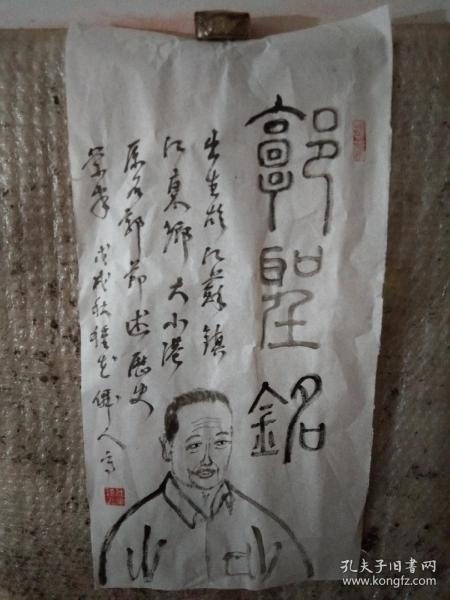 郭聖銘
出生於江蘇鎮
江東鄉大小港
原名郭節述歷史
學家 戊戌秋種花儒人寫
孔夫子旧书网
www.kongfz.com